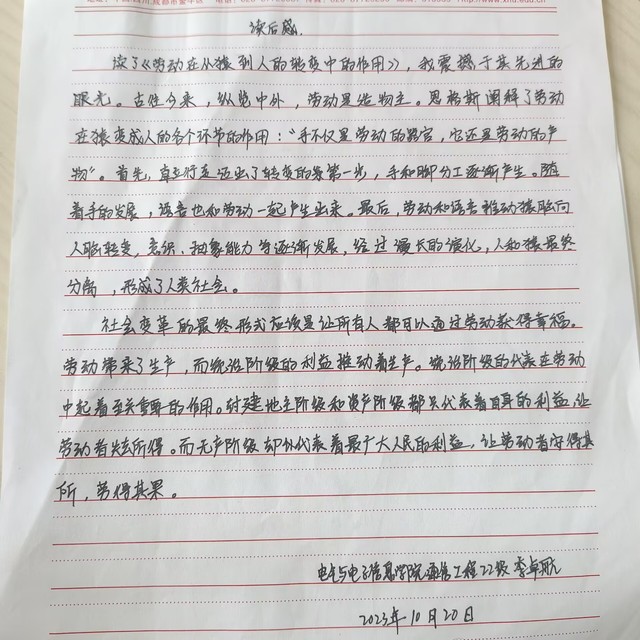 读后感.
读了《劳动在从猿到人的转变中的作用》，我震撼于其先进的
眼光。古往今来，纵览中外，劳动是造物主。恩格斯阐释了劳动
在猿变成人的各个环节的作用："手不仅是劳动的器官，它还是劳动的产
物"。首先，直立行走迈出了转变的第一步，手和脚分工逐渐产生。随
着手的发展，语言也和劳动一起产生出来。最后，劳动和语言推动猿脑向
人脑转变，意识、抽象能力等逐渐发展，经过漫长的演化，人和猿最终
分离，形成了人类社会。
社会变革的最终形式应该是让所有人都可以通过劳动获得幸福。
劳动带来了生产，而统治阶级的利益推动着生产。统治阶级的代表在劳动
中起着至关重要的作用。封建地主阶级和资产阶级都只代表着自身的利益，让
劳动者失去所得。而无产阶级却代表着最广大人民的利益，让劳动者守得其
所，劳得其果。
电气与电子信息学院通信工程22级 李卓航
2023年10月20日